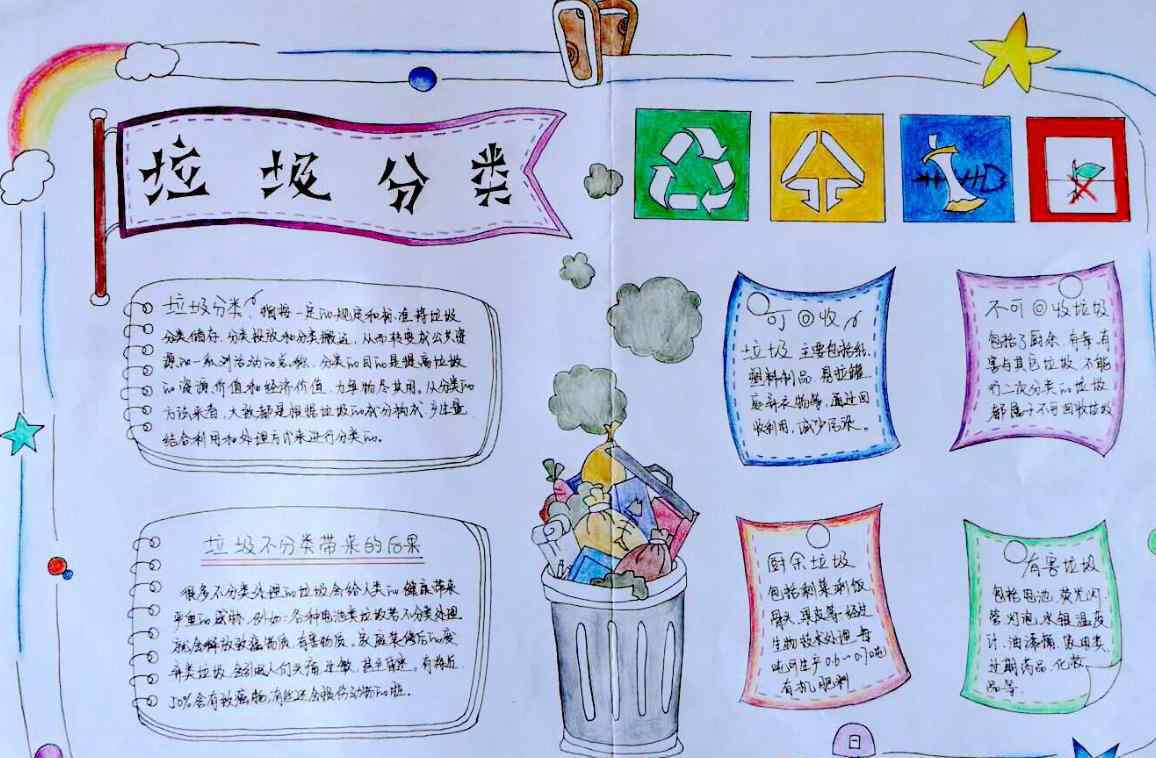 垃圾分类
垃圾分类,指按一定的规定和标准将垃圾
分类储存,分类投放和分类搬运,从而转变成公共资
源的一系列活动的总称.分类的目的是提高垃圾
的资源价值和经济价值,力争物尽其用.从分类的
方法来看,大致都是根据垃圾的成分构成,产生量
结合利用和处理方式来进行分类的.
垃圾不分类带来的后果
很多不分类处理的垃圾会给人类的健康带来
严重的威胁.例如:各种电池类垃圾若不分类处理
就会释放致癌物质,有害物质.家庭装修后的废
弃类垃圾,会引起人们头痛,过敏,甚至
50%含有致癌物,有些还会损伤动物的
可回收
垃圾 主要包括纸,
塑料制品,易拉罐
衣物等,通过回
收利用,减少污染。
不可回收垃圾
包括了厨余,有毒,有
害与其它垃圾,不能
的二次分类的垃圾
都属于不可回收垃圾
厨余垃圾
包括剩菜剩饭,
骨头,果皮等.经过
生物技术处理,每
吨可生产0.6~0.7吨
有机肥料
有害垃圾
包括电池,荧光灯
管,灯泡,水银温度
计,油漆桶,家用类,
过期药品,化妆
品等.
日